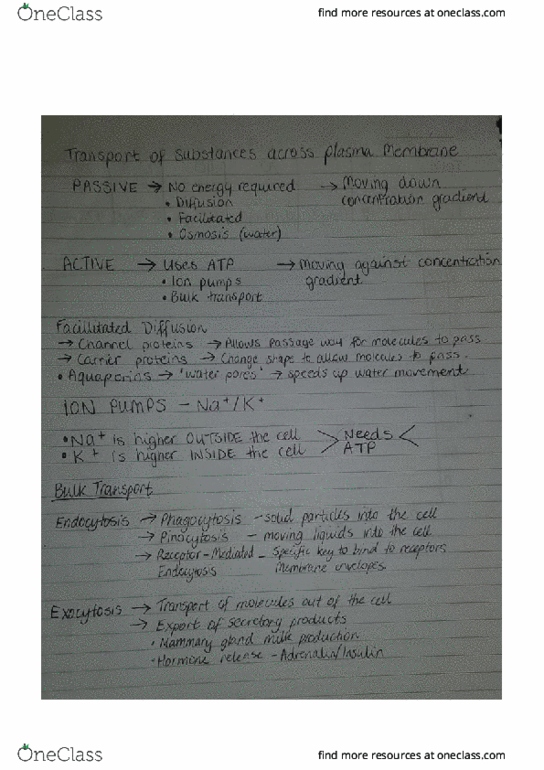 OneClass
find more resources at oneclass.com
Transport of substances across plasma Membrane
PASSIVE → No energy required → Moving down
• Diffusion concentration gradiend
• Facilitated
• Osmosis (water)
ACTIVE → Uses ATP → Moving against concentration
• Ion pumps gradient
• Bulk transport
Facilitated Diffusion
→ Channel proteins → Allows passage way for molecules to pass
→ Carrier proteins → Change shape to allow molecules to pass.
• Aquaporins → 'water pores' → speeds up water movement
ION PUMPS – Na⁺/K⁺
• Na⁺ is higher OUTSIDE the cell > Needs <
• K⁺ is higher INSIDE the cell ATP
Bulk Transport
Endocytosis → Phagocytosis – solid particles into the cell
→ Pinocytosis – moving liquids into the cell
→ Receptor-Mediated – Specific key to bind to receptors
Endocytosis Membrane envelopes
Exocytosis → Transport of molecules out of the cell
→ Export of secretory products
• Mammary gland milk production
• Hormone release – Adrenalin/Insulin
OneClass
find more resources at oneclass.com